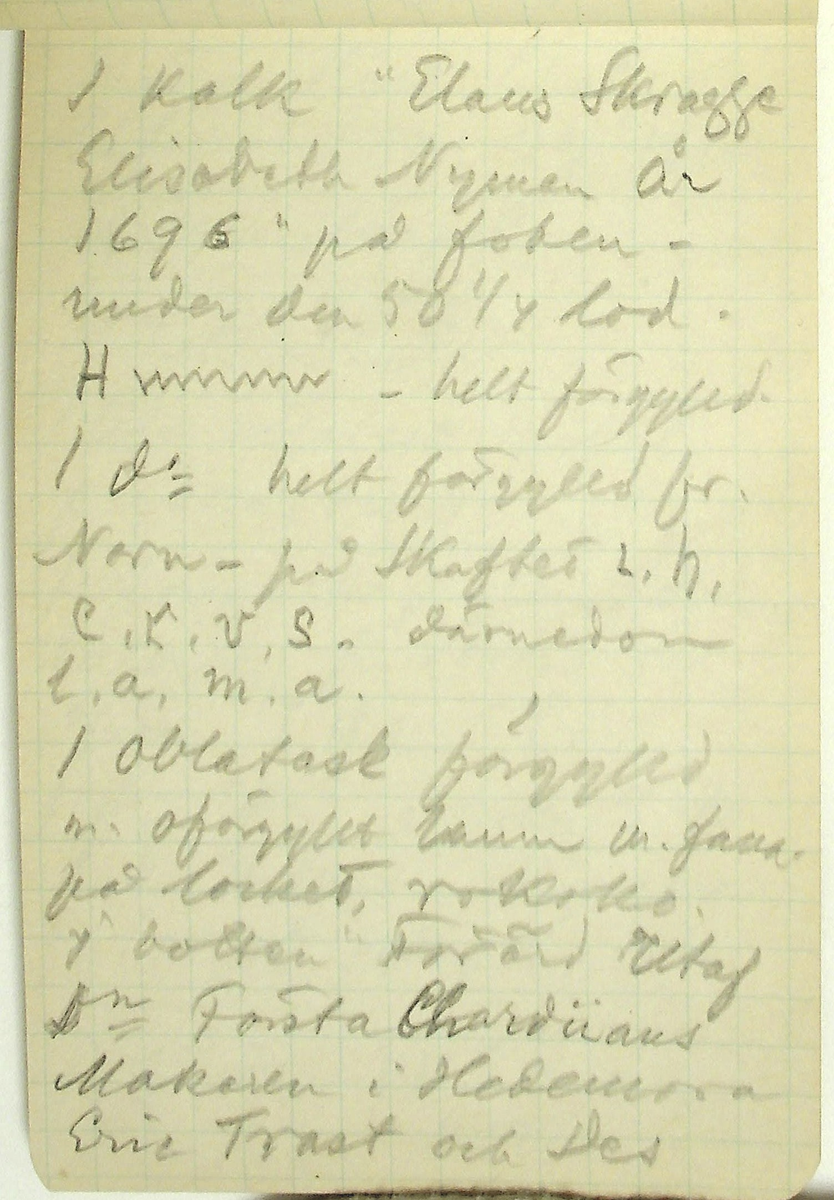 1 Kalk "Elaus Skragge
Elisabeth Nyman År
1696" på foten -
under den 50 1/4 lod.
H - helt förgylld.
1 do helt förgylld fr.
Norn - på Skaftet L. h.
C. K. V. S. därnedom
l. a. m. a.
1 Oblatask förgylld
m. oförgyllt lamm m. fana
på locket, rokoko.
i botten "Förärd Utaf
Dn Första Chordiians
Makaren i Hedemora
Eric Trast och Des